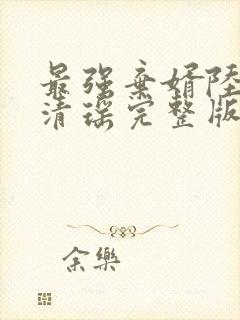 最强棄婿陸
清瑶完整版
余樂